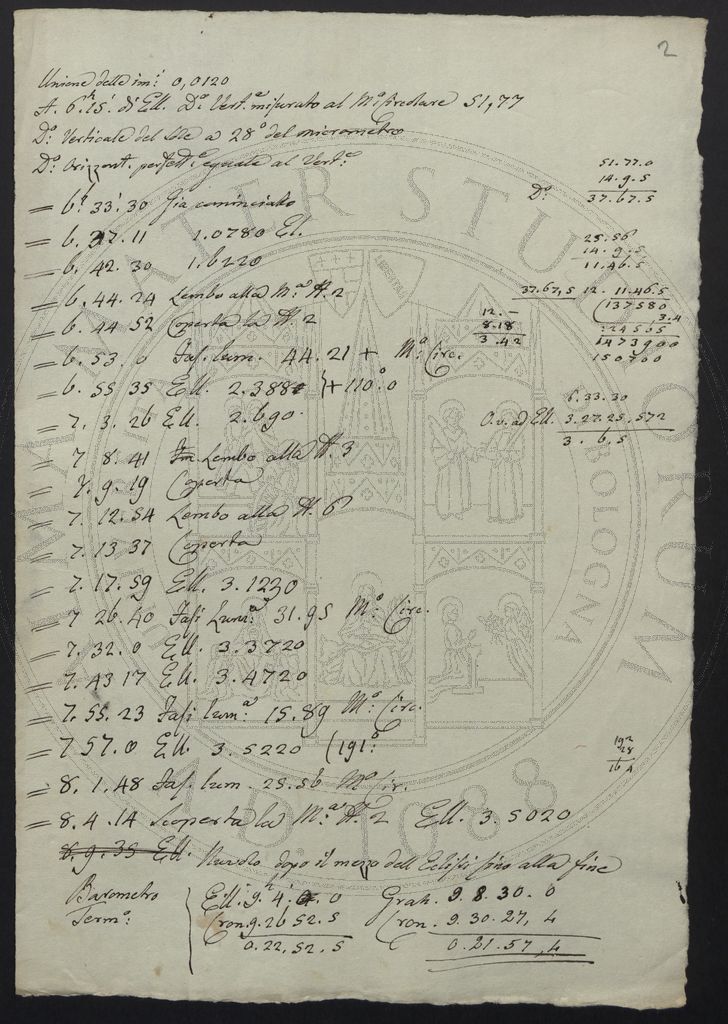 2
Unione delle im: 0,0120
A. 6h 15' di Ell. Do. Vert.e misurato al Mo. Circolare 51,77
Do. Verticale del Sole a 28° del micrometro
Do. Orizzont. perfett.e eguale al Vert.e
51.77.0
14.9.5
Do: 37.67.5
= 6h 33'.30 Già cominciato
= 6.37.11 1.0780 El.
25.56
14.9.5
11.46.5
= 6.42.30 1.6220
= 6.44.24 Lembo alla M.a A.2
37.67,5 12. 11.46.5
(137580
3.4
= 6.44 52 Coperta la A.2
12.-
8.18
3.42
1473900
150700
= 6.53.0 Fas. lum. 44.21 + Mo. Circ.
= 6.55 35 Ell. 2.388 + 110°.0
6.33.30
= 7.3.26 Ell. 2.690
O.v. ad Ell. 3.27.25,572
3.6,5
= 7 8.41 Lembo alla A.3
= 7.9.19 Coperta
= 7.12.54 Lembo alla A.6
= 7.13 37 Coperta
= 7.17.59 Ell. 3.1230
= 7 26.40 Fasi Lum.a 31.95 Mo. Circ.
= 7.32.0 Ell. 3.3720
= 7.43 17 Ell. 3.4720
= 7.55.23 Fasi lum.a 15.89 Mo. Circ.
= 7 57.0 Ell. 3.5220 (191°
192
28
164
= 8.1.48 Fas. lum. 25.56 Mo. Cir.
= 8.4.14 Scoperta la M.a A.2 Ell. 3.5020
8.9.35 Ell. Nuvolo dopo il mezzo dell'Eclissi fino alla fine
Barometro
Term.o:
Ell. 9h 4'. 0
Cron. 9.26 52.5
0.22.52.5
Grah. 9.8.30.0
Cron. 9.30.27,4
0.21.57,4
ALMA MATER STUDIORUM
A.D. 1088
BOLOGNA
LIBERTAS